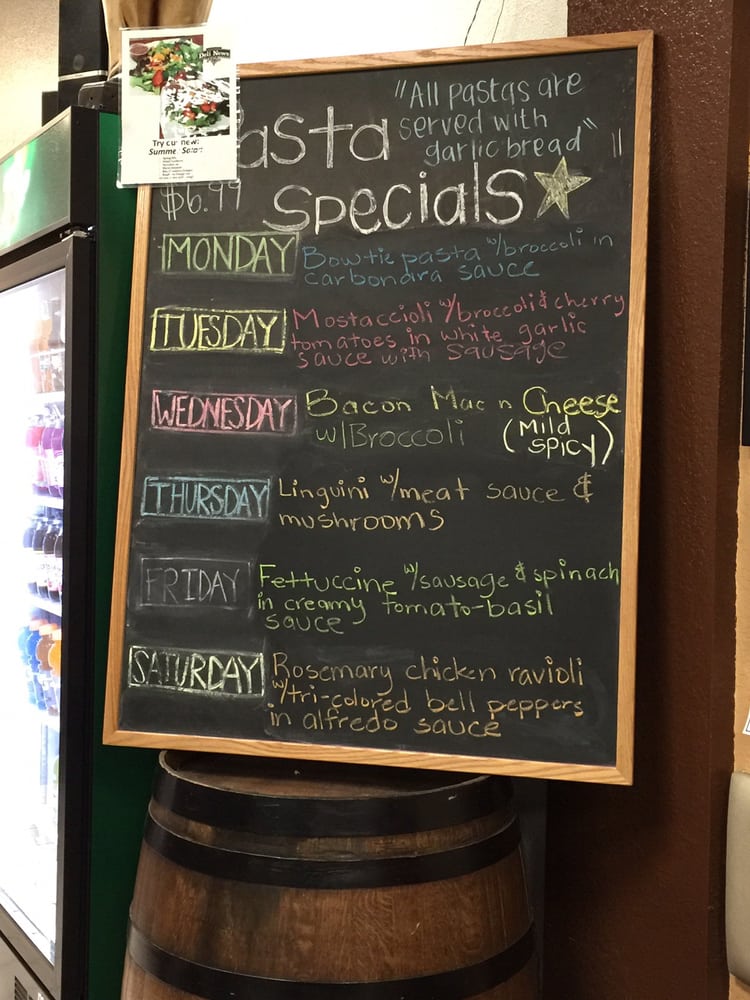 Deli News
Try our new:
Summer Salad
"All pastas are
served with
garlic bread"
Pasta
Specials
$6.99
MONDAY
Bowtie pasta w/broccoli in
carbondra sauce
TUESDAY
Mostaccioli w/broccoli & cherry
tomatoes in white garlic
sauce with sausage
WEDNESDAY
Bacon Mac n Cheese
w/Broccoli (Mild
SPICY)
THURSDAY
Linguini w/meat sauce &
mushrooms
FRIDAY
Fettuccine w/sausage & spinach
in creamy tomato-basil
sauce
SATURDAY
Rosemary chicken ravioli
w/tri-colored bell peppers
in alfredo sauce